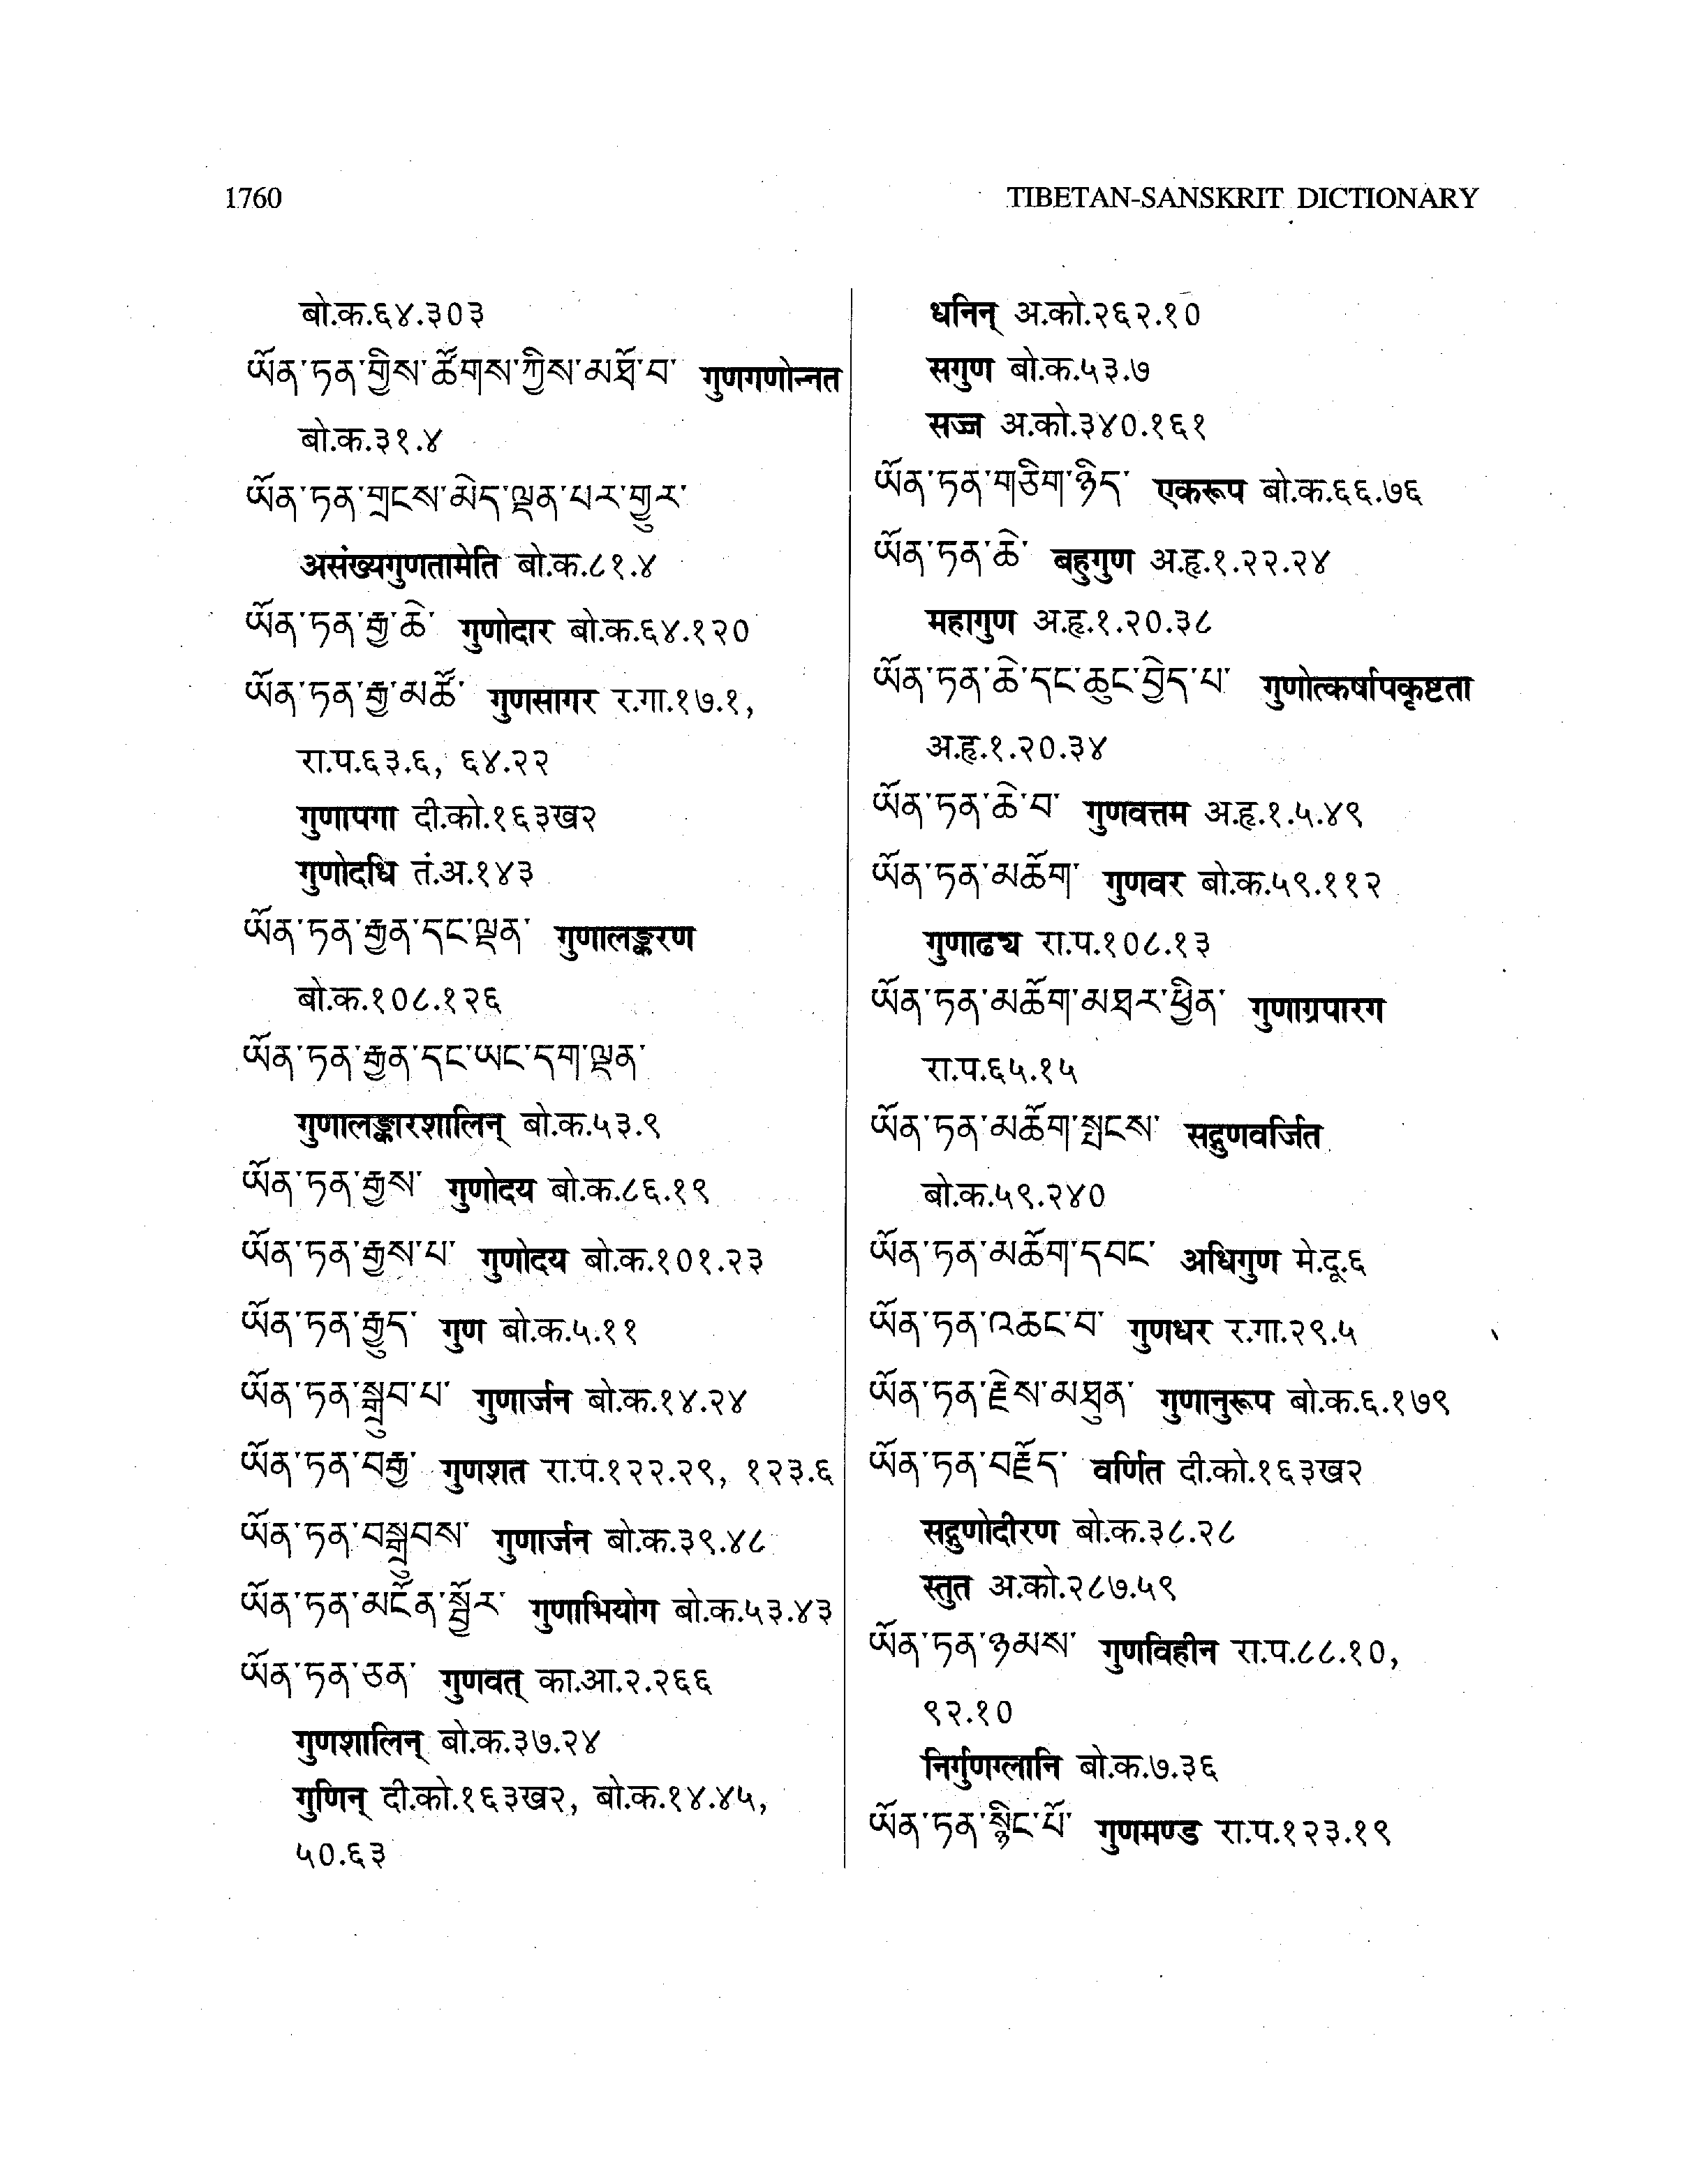 1760
TIBETAN-SANSKRIT DICTIONARY
बो.क.६४.३०३
ཡོན་ཏན་གྱིས་ཚོགས་ཀྱིས་མཐོ་བ་ गुणगणोन्नत
बो.क.३१.४
ཡོན་ཏན་གྲངས་མེད་ལྡན་པར་གྱུར་
असंख्यगुणतामेति बो.क.८१.४
ཡོན་ཏན་རྒྱ་ཆེ་ गुणोदार बो.क.६४.१२०
ཡོན་ཏན་རྒྱ་མཚོ་ गुणसागर र.गा.१७.१,
रा.प.६३.६, ६४.२२
गुणापगा दी.को.१६३ख२
गुणोदधि तं.अ.१४३
ཡོན་ཏན་རྒྱན་དང་ལྡན་ गुणालङ्करण
बो.क.१०८.१२६
ཡོན་ཏན་རྒྱན་དང་ཡང་དག་ལྡན་
गुणालङ्कारशालिन् बो.क.५३.९
ཡོན་ཏན་རྒྱས་ गुणोदय बो.क.८६.१९
ཡོན་ཏན་རྒྱས་པ་ गुणोदय बो.क.१०१.२३
ཡོན་ཏན་རྒྱུད་ गुण बो.क.५.११
ཡོན་ཏན་སྒྲུབ་པ་ गुणार्जन बो.क.१४.२४
ཡོན་ཏན་བརྒྱ་ गुणशत रा.प.१२२.२९, १२३.६
ཡོན་ཏན་བསྒྲུབས་ गुणार्जन बो.क.३९.४८
ཡོན་ཏན་མངོན་སྦྱོར་ गुणाभियोग बो.क.५३.४३
ཡོན་ཏན་ཅན་ गुणवत् का.आ.२.२६६
गुणशालिन् बो.क.३७.२४
गुणिन् दी.को.१६३ख२, बो.क.१४.४५,
५०.६३
धनिन् अ.को.२६२.१०
सगुण बो.क.५३.७
सज्ज अ.को.३४०.१६१
ཡོན་ཏན་གཅིག་ཉིད་ एकरूप बो.क.६६.७६
ཡོན་ཏན་ཆེ་ बहुगुण अ.हृ.१.२२.२४
महागुण अ.हृ.१.२०.३८
ཡོན་ཏན་ཆེ་དང་ཆུང་བྱེད་པ་ गुणोत्कर्षापकृष्टता
अ.हृ.१.२०.३४
ཡོན་ཏན་ཆེ་བ་ गुणवत्तम अ.हृ.१.५.४९
ཡོན་ཏན་མཆོག་ गुणवर बो.क.५९.११२
गुणाढ्य रा.प.१०८.१३
ཡོན་ཏན་མཆོག་མཐར་ཕྱིན་ गुणाग्रपारग
रा.प.६५.१५
ཡོན་ཏན་མཆོག་སྤངས་ सद्गुणवर्जित
बो.क.५९.२४०
ཡོན་ཏན་མཆོག་དབང་ अधिगुण मे.दू.६
ཡོན་ཏན་འཆང་བ་ गुणधर र.गा.२९.५
ཡོན་ཏན་རྗེས་མཐུན་ गुणानुरूप बो.क.६.१७९
ཡོན་ཏན་བརྗོད་ वर्णित दी.को.१६३ख२
सद्गुणोदीरण बो.क.३८.२८
स्तुत अ.को.२८७.५९
ཡོན་ཏན་ཉམས་ गुणविहीन रा.प.८८.१०,
९२.१०
निर्गुणग्लानि बो.क.७.३६
ཡོན་ཏན་སྙིང་པོ་ गुणमण्ड रा.प.१२३.१९